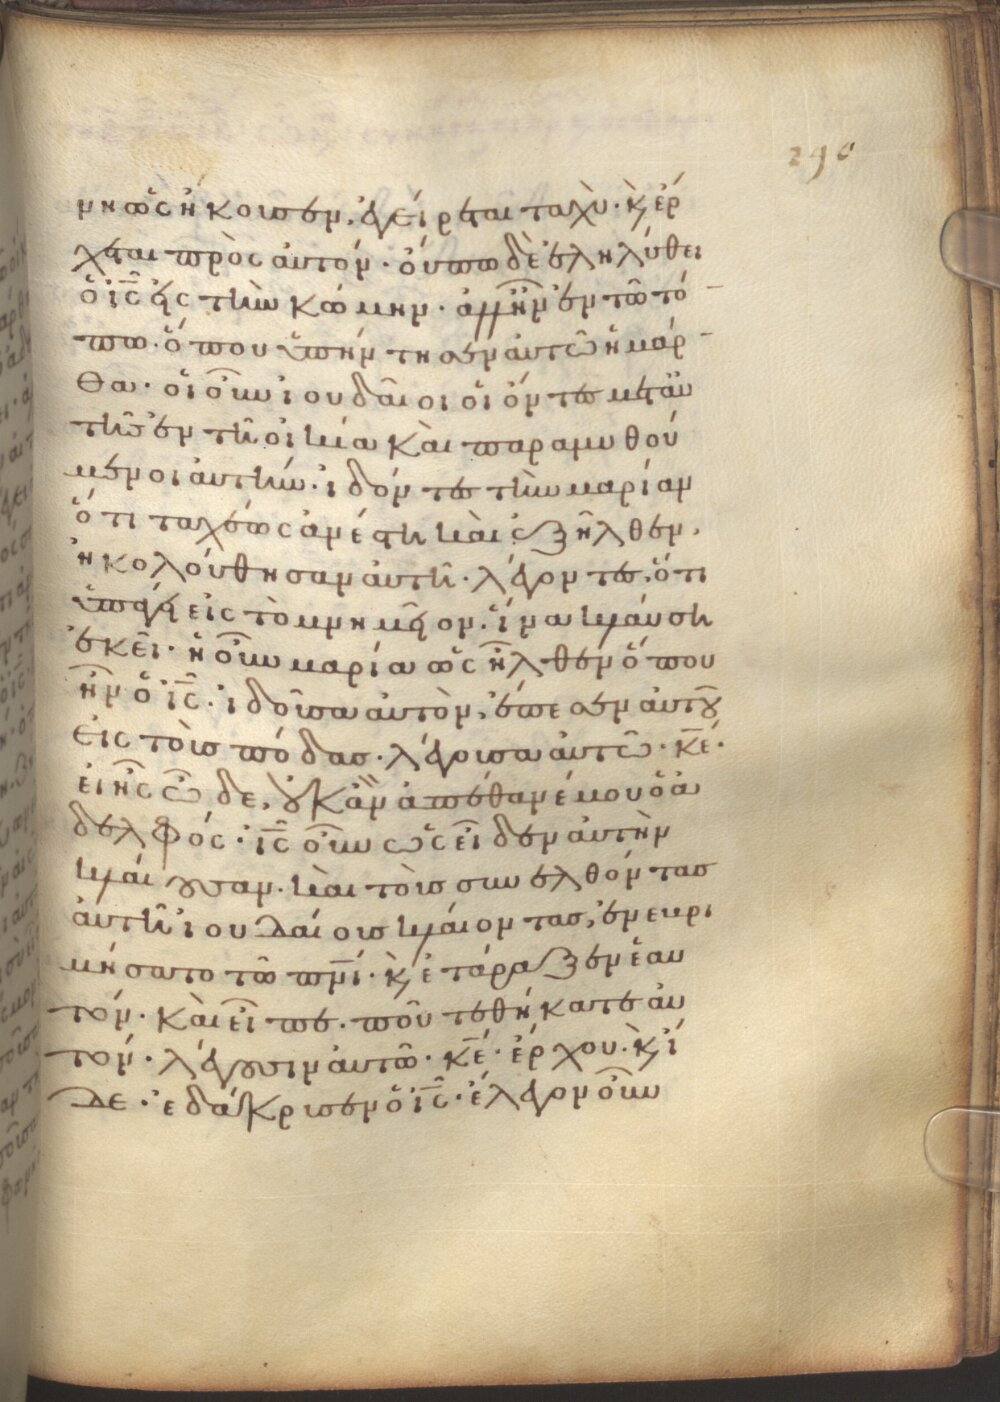 290
νη ὡς ἤκουσεν, ἐγείρεται ταχὺ· κ̀ ἔρ
χεται πρὸς αὐτόν· οὔπω δὲ ἐληλύθει
ὁ ι̅ς̅ εἰς τὴν κώμην· ἀλλ᾽ ἦν ἐν τῶ τό
πω· ὅπου ὑπήντησεν αὐτῶ ἡ μάρ
θα· οἱ οὖν ἰουδαῖοι οἱ ὄντες μετ᾽ αυ
τῆς ἐν τῆ οἰκία καὶ παραμυθού
μενοι αὐτήν· ἰδόντες τὴν μαρίαν
ὅτι ταχέως ἀνέστη καὶ ἐξῆλθεν,
ἠκολούθησαν αὐτῆ· λέγοντες, ὅτι
ὑπάγει εἰς τὸ μνημεῖον. ἵνα κλαύση
ἐκεῖ· ἡ οὖν μαρία ὡς ἦλθεν ὅπου
ἦν ὁ ι̅ς̅· ἰδοῦσα αὐτὸν, ἔπεσεν αὐτοῦ
εἰς τοὺς πόδας· λέγουσα αὐτῶ· κ̅ε̅·
εἰ ἦς ὧδε, οὐκ ἂν ἀπέθανέ μου ὁ ἀ
δελφός· ι̅ς̅ οὖν ὡς εἶδεν αὐτὴν
κλαίουσαν. καὶ τοὺς συνελθόντας
αὐτῆ ἰουδαίους κλαίοντας, ἐνεβρι
μήσατο τῶ π̅ν̅ι̅· κ̀ ἐτάραξεν ἑαυ
τόν· καὶ εἶπε· ποῦ τεθήκατε αὐ
τόν· λέγουσιν αὐτῶ· κ̅ε̅· ἔρχου· κ̀ ἴ
δε· ἐδάκρυσεν ὁ ι̅ς̅· ἔλεγον οὖν